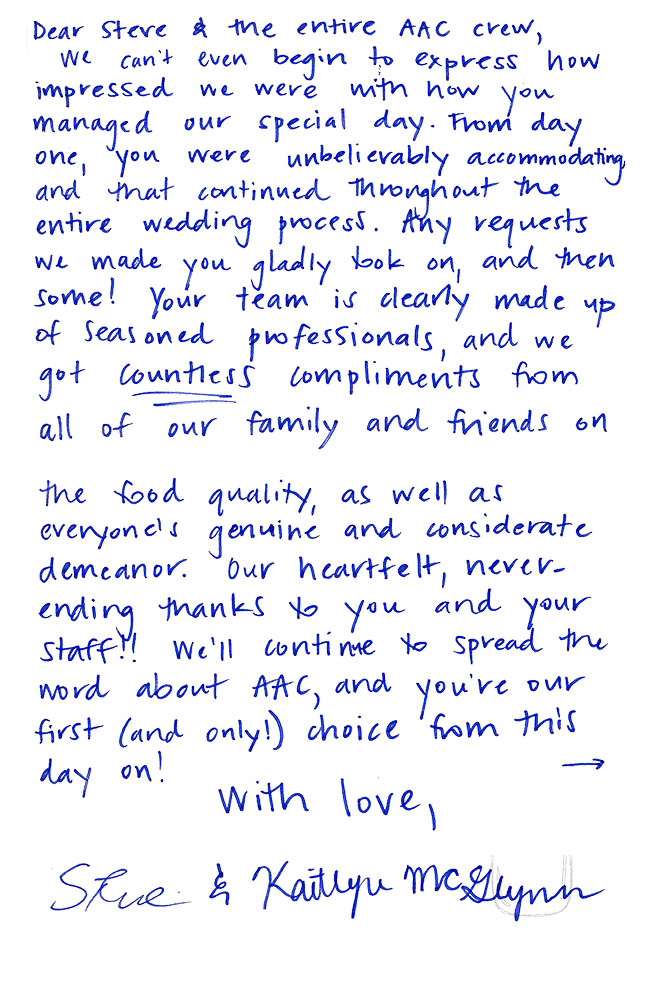 Dear Steve & the entire AAC crew,
We can't even begin to express how
impressed we were with how you
managed our special day. From day
one, you were unbelievably accommodating,
and that continued throughout the
entire wedding process. Any requests
we made you gladly took on, and then
some! Your team is clearly made up
of seasoned professionals, and we
got countless compliments from
all of our family and friends on
the food quality, as well as
everyone's genuine and considerate
demeanor. Our heartfelt, never-
ending thanks to you and your
staff!! We'll continue to spread the
word about AAC, and you're our
first (and only!) choice from this
day on! →
With love,
Steve & Kaitlyn McGlynn